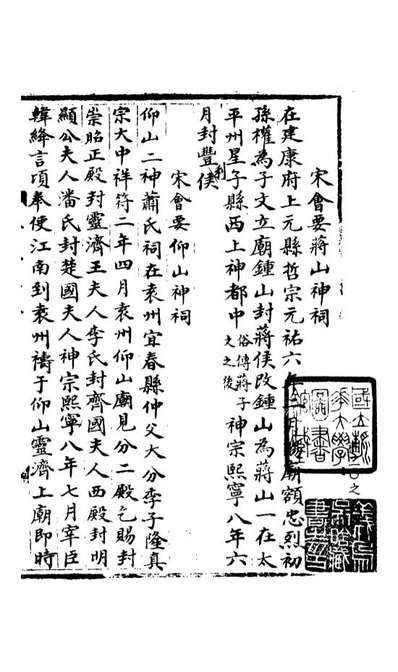 宋會要蔣山神祠
在建康府上元縣哲宗元祐六年 廟額忠烈初
孫權為子文立廟鍾山封蔣侯改鍾山為蔣山一在太
平州星子縣西上神都中俗傳蔣子文之後神宗熙寧八年六
月封豐利侯
宋會要仰山神祠
仰山二神蕭氏祠在袁州宜春縣仲父大分季子隆真
宗大中祥符二年四月袁州仰山廟見分二殿乞賜封
崇昭正殿封靈濟王夫人李氏封齊國夫人西殿封明
顯公夫人潘氏封楚國夫人神宗熙寧八年七月宰臣
韓絳言項奉使江南到袁州禱于仰山靈濟上廟即時